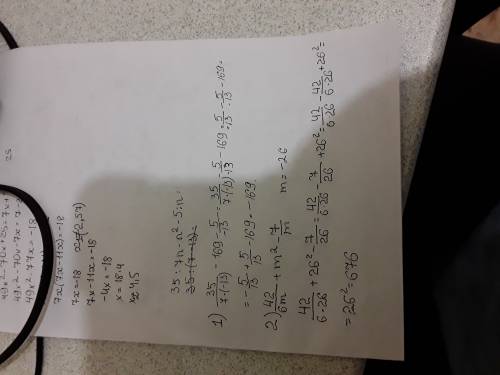 49x²-70x+25=7x+
49x²-70x-7x=7-2
49x²-77x=-18
25
7x(7x-11x)=-18
7x=-18
7x-11x=-18
-4x=-18
x=18:4
x=4,5
35:7n-n²-5:n=
1) 35/7·(-13) - 169 - 5/-13 = 35/7·(-13) - 5/-13 - 169 = 5/-13 - 5/-13 - 169 =
= -5/13 + 5/13 - 169 = -169.
2) 42/6m + m² - 7/m   m=-26
42/6·26 + 26² - 7/26 = 42/6·26 - 7/26 + 26² = 42/6·26 - 42/6·26 + 26² =
= 26² = 676